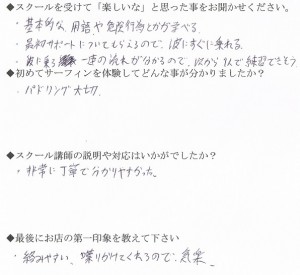 ◆スクールを受けて「楽しいな」と思った事をお聞かせください。
・基本的な、用語や危険行為とかが学べる。
・最初サポートについてもらえるので、波にすぐに乗れる。
・波に乗る 一連の流れが分かるので、次から1人で練習できそう
◆初めてサーフィンを体験してどんな事が分かりましたか？
・パドリング大切.
◆スクール講師の説明や対応はいかがでしたか？
・非常に丁寧で分かりやすかった。
◆最後にお店の第一印象を教えて下さい
・絡みやすい、喋りかけてくれるので、気楽